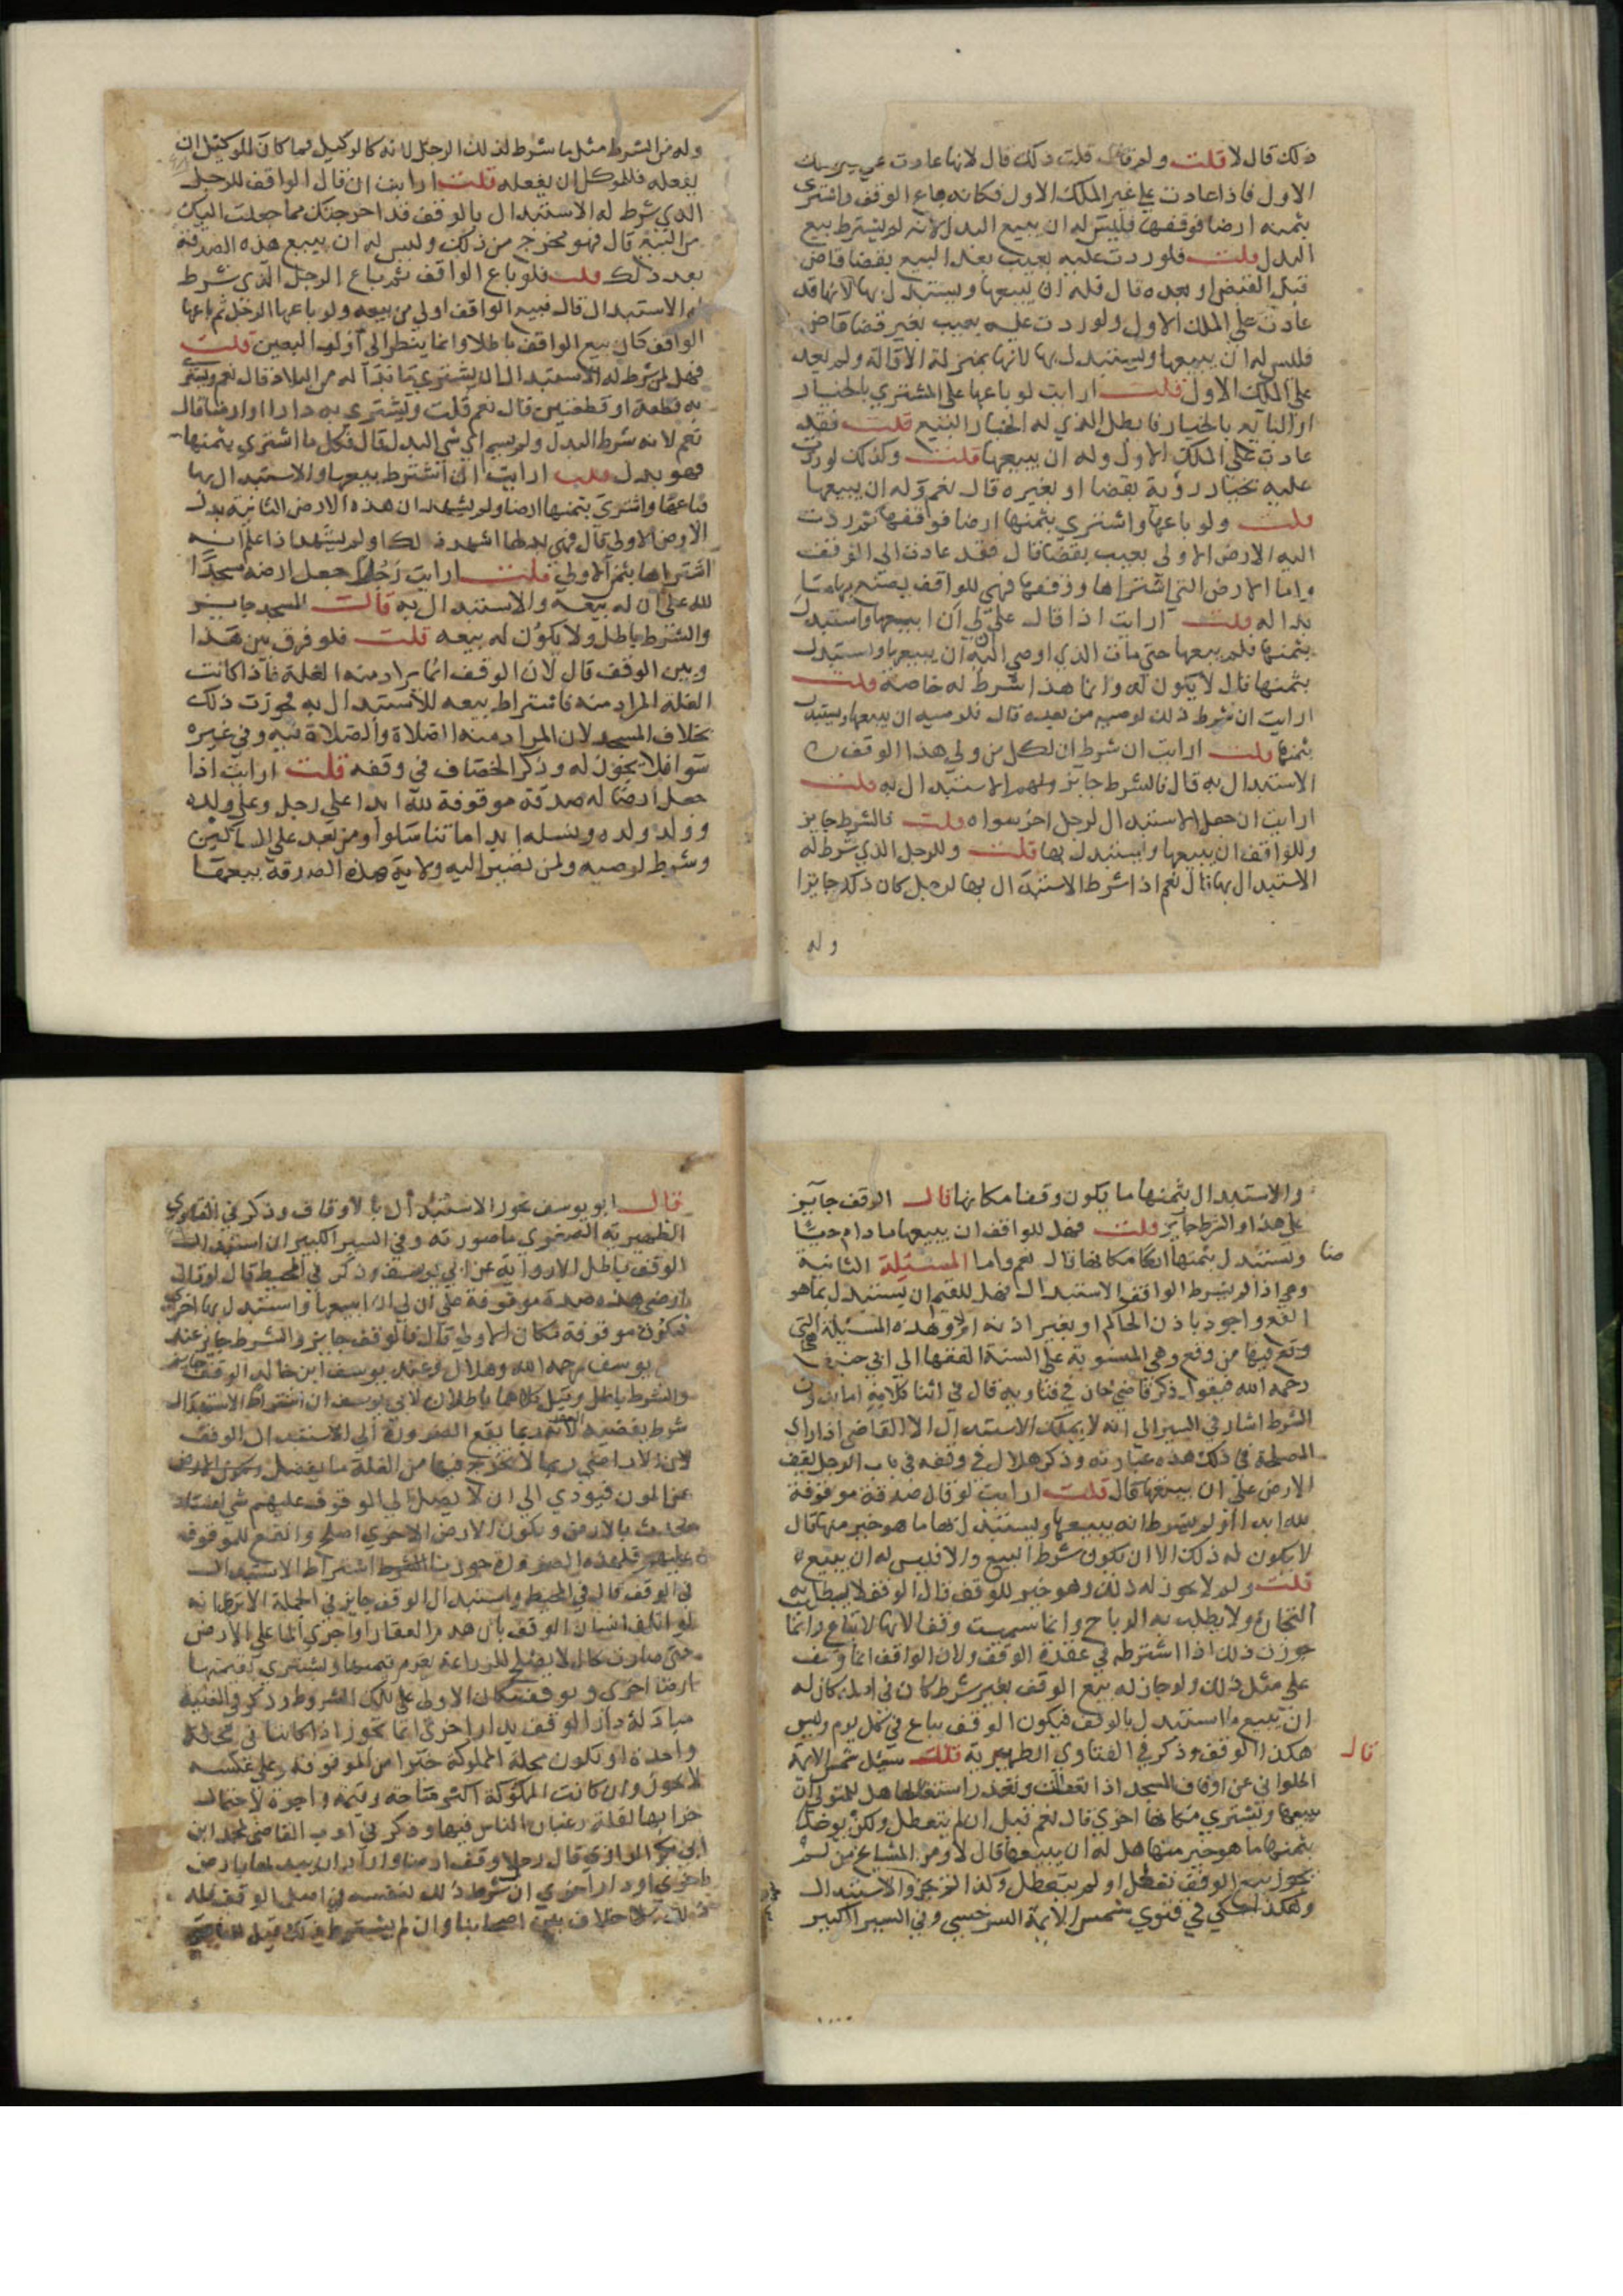 ذلك قال لا قلت ولم قلت ذلك قال لانها عادت على
الاول فاذا عادت على غير الملك الاول فكانه باع الوقف واشترى
بثمنه ارضا فوقفها فليس له ان يبيع البدل لانه لم يشترط بيع
البدل قلت فلو ردت عليه بعيب بعد البيع بقضا قاض
قبل القبض او بعده قال فله ان يبيعها ويستبدل بها لانها قد
عادت على الملك الاول ولو ردت عليه بعيب بغير قضا قاض
فليس له ان يبيعها ويستبدل بها لانها بمنزلة الاقالة ولم تعد
على الملك الاول قلت ارايت لو باعها على المشتري بالخيار
او البايع بالخيار فابطل الذي له الخيار البيع قلت فقد
عادت على الملك الاول وله ان يبيعها قلت وكذلك لو ردت
عليه بخيار رؤية بقضا او بغيره قال نعم وله ان يبيعها
قلت ولو باعها واشترى بثمنها ارضا فوقفها ثم ردت
اليه الارض الاولى بعيب بقضا قال فقد عادت الى الوقف
واما الارض التي اشتراها ووقفها فهي للواقف يصنع بها ما
بدا له قلت ارايت اذا قال على لي ان ابيعها واستبدل
بثمنها فلم يبيعها حتى مات الذي اوصى اليه ان يبيعها واستبدل
بثمنها قال لا يكون له وانما هذا شرط له خاصة قلت
ارايت ان شرط ذلك لوصيه من بعده قال فلوصيه ان يبيعها ويستبدل
بثمنها قلت ارايت ان شرط ان لكل من ولي هذا الوقف
الاستبدال به قال فالشرط جايز ولهم الاستبدال به قلت
ارايت ان جعل الاستبدال لرجل اخر سواه قلت فالشرط جايز
وللواقف ان يبيعها ويستبدل بها قلت وللرجل الذي شرط له
الاستبدال بها قال نعم اذا شرط الاستبدال بها لرجل كان ذلك جايزا
وله
وله من الشرط مثل ما شرط لذلك الرجل لانه كالوكيل فما كان للوكيل ان
يفعله فللموكل ان يفعله قلت ارايت ان قال الواقف للرجل
الذي شرط له الاستبدال بالوقف قد اخرجتك مما جعلت اليك
من البيع قال فهو مخرج من ذلك وليس له ان يبيع هذه الصدقة
بعد ذلك قلت فلو باع الواقف ثم باع الرجل الذي شرط
له الاستبدال قال فبيع الواقف اولى من بيعه ولو باعها الرجل ثم باعها
الواقف كان بيع الواقف باطلا وانما ينظر الى اول البيعين قلت
فهل لمن شرط له الاستبدال ان يشتري ما بدا له من البلاد قال نعم ويشتري
به قطعة او قطعتين قال نعم قلت ويشتري به دارا او ارضا قال
نعم لانه شرط البدل ولم يسم اي شي البدل قال فكل ما اشترى بثمنها
فهو بدل قلت ارايت ان اشترط بيعها والاستبدال بها
فباعها واشترى بثمنها ارضا ولم يشهد ان هذه الارض الثانية بدل
الارض الاولى قال فهي بدلها اشهد ذلك او لم يشهد اذا علم انه
اشتراها بثمن الاولى قلت ارايت رجلا جعل ارضه مسجدا
لله على ان له بيعه والاستبدال به قالت المسجد جايز
والشرط باطل ولا يكون له بيعه قلت فلو فرق بين هذا
وبين الوقف قال لان الوقف انما يراد منه الغلة فاذا كانت
الغلة المراد منه فاشتراط بيعه للاستبدال به فجوزت ذلك
بخلاف المسجد لان المراد منه الصلاة والصلاة فيه وفي غيره
سوا فلا يجوز له وذكر الخصاف في وقفه قلت ارايت اذا
جعل ارضا له صدقة موقوفة لله ابدا على رجل وعلى ولده
وولد ولده ونسله ابدا ما تناسلوا ومن بعد على المساكين
وشرط لوصيه ولمن تصير اليه ولاية هذه الصدقة بيعها
والاستبدال بثمنها ما يكون وقفا مكانها قال الوقف جايز
على هذا والشرط جايز قلت فهل للواقف ان يبيعها ما دام حيا
ويستبدل بثمنها مكانها قال نعم واما المسئلة الثانية
وهي اذا لم يشترط الواقف الاستبدال فهل للقيم ان يستبدل بما هو
انفع واجود باذن الحاكم او بغير اذنه او لا وهذه المسئلة التي
وقع فيها من وقع وهي المنسوبة على السنة الفقها الى ابي حنيفة
رحمه الله فنقول ذكر قاضي خان في فتاويه قال في اثنا كلامه اما بدون
الشرط اشار في السير الى انه لا يملك الاستبدال الا القاضي اذا راى
المصلحة في ذلك هذه عبارته وذكر هلال في وقفه في باب الرجل يقف
الارض على ان يبيعها قال قلت ارايت لو قال صدقة موقوفة
لله ابدا ولم يشترط انه يبيعها ويستبدل بها ما هو خير منها قال
لا يكون له ذلك الا ان يكون شرط البيع والا فليس له ان يبيع
قلت ولم لا يجوز له ذلك وهو خير للوقف قال الوقف لا يطلب به
التجارة ولا يطلب به الارباح وانما سميت وقفا لانها لا تباع وانما
جوزت ذلك اذا اشترطه في عقدة الوقف ولان الواقف انما وقف
على مثل ذلك ولو جاز له بيع الوقف بغير شرط كان في اوله كان له
ان يبيع ما استبدل بالوقف فيكون الوقف يباع في كل يوم وليس
هكذا الوقف وذكر في الفتاوي الظهيرية قلت سئل شمس الايمة
قال
الحلواني عن اوقاف المسجد اذا تعطلت وتعذر استغلالها هل للمتولي ان
يبيعها ويشتري مكانها اخرى قال نعم قيل ان لم يتعطل ولكن يوخذ
بثمنها ما هو خير منها هل له ان يبيعها قال لا ومن المشايخ من لم
يجوز بيع الوقف تعطل او لم يتعطل وكذا لم يجوز الاستبدال
وهكذا حكي في فتوى شمس الايمة السرخسي وفي السير الكبير
قال ابو يوسف يجوز الاستبدال بالاوقاف وذكر في الفتاوي
الظهيرية الصغرى ما صورته وفي السير الكبير ان استبدال
الوقف باطل الا رواية عن ابي يوسف وذكر في المحيط قال لو قال
ارضي هذه صدقة موقوفة على ان لي ان ابيعها واستبدل بها اخرى
فتكون موقوفة مكان الاولى قال فالوقف جايز والشرط جايز عند
يوسف رحمه الله وهلال وعند يوسف ابن خالد الوقف جايز
والشرط باطل وقيل كلاهما باطلان لابي يوسف ان اشتراط الاستبدال
شرط يقتضيه العقد لانه ربما يقع الضرورة الى الاستبدال الوقف
لان الاراضي ربما لا يخرج فيها من الغلة ما يفضل
عن المون فيودي الى ان لا يصل الى الموقوف عليهم شي
بالارض ويكون الارض الاخرى اصلح وانفع للموقوف
عليهم فلهذه الضرورة جوزنا اشتراط الاستبدال
في الوقف قال في المحيط واستبدال الوقف جايز في الجملة الا ترى انه
لو اتلف انسان الوقف بان هدم العقار او اجرى الما على الارض
حتى صارت بحال لا يصلح للزراعة يغرم قيمتها ويشتري بقيمتها
ارضا اخرى ويوقف مكان الاولى على تلك الشروط وذكر في القنية
مبادلة دار الوقف بدار اخرى انما تجوز اذا كانتا في محلة
واحدة او يكون محلة المملوكة خيرا من الموقوفة وعلى عكسه
لا يجوز وان كانت المملوكة اكثر مساحة وقيمة واجرة لاحتمال
خرابها لقلة رغبات الناس فيها وذكر في ادب القاضي لمحمد ابن
ابي بكر الرازي قال رجل وقف ارضا واراد ان يبدلها بارض
اخرى او دار اخرى ان شرط ذلك لنفسه في اصل الوقف فله
ذلك بلا خلاف بين اصحابنا وان لم يشترط